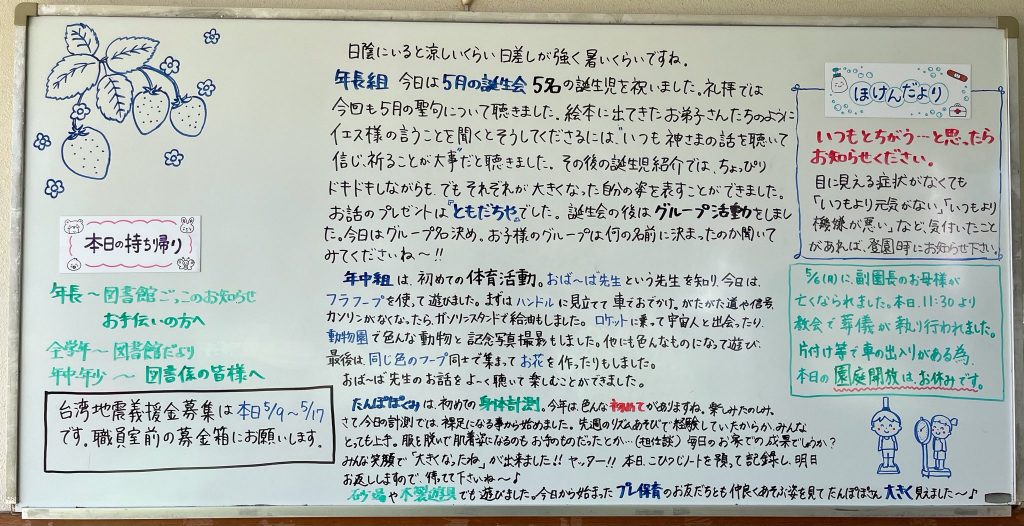 日陰にいると涼しいくらい日差しが強く暑いくらいですね。
年長組 今日は5月の誕生会 5名の誕生児を祝いました。礼拝では
今回も5月の聖句について聴きました。絵本に出てきたお弟子さんたちのように
イエス様の言うことを聞くとそうしてくださるには"いつも神さまの話を聴いて
信じ祈ることが大事"だと聴きました。その後の誕生児紹介では、ちょっぴり
ドキドキしながらも、でもそれぞれが大きくなった自分の姿を表すことができました。
お話のプレゼントは『ともだちや』でした。誕生会の後はグループ活動をしまし
た。今日はグループ名決め。お子様のグループは何の名前に決まったのか聞いて
みてくださいね～!!
年中組は、初めての体育活動。おば～ば先生という先生を知り、今日は、
フラフープを使って遊びました。まずはハンドルに見立てて車でおでかけ。がたがた道や信号、
ガソリンがなくなったら、ガソリンスタンドで給油もしました。ロケットに乗って宇宙人と出会ったり、
動物園で色んな動物と記念写真撮影もしました。他にも色んなものになって遊び、
最後は、同じ色のフープ同士で集まってお花を作ったりもしました。
おば～ば先生のお話をよ～く聴いて楽しむことができました。
たんぽぽぐみは、初めての身体計測。今年は、色んな初めてがありますね。楽しみたのしみ。
さて今日の計測では、裸足になる事から始めました。先週のリズムあそびで経験していたからか、みんな
とっても上手。服も脱いで肌着姿になるのもお手のものだったとか…(担任談)毎日のお家での成果でしょうか?
みんな笑顔で「大きくなったね」が出来ました!!ヤッター!!本日、こひつじノートを預って記録し、明日
お返ししますので、待てて下さいね～♪
砂場や木製遊具でも遊びました。今日から始まったプレ保育のお友だちとも仲良くあそぶ姿を見てたんぽぽさん大きく見えました～♪
本日の持ち帰り
年長～図書館ごっこのお知らせ
お手伝いの方へ
全学年～図書館だより
年中年少～図書係の皆様へ
台湾地震義援金募集は本日5/9～5/17
です。職員室前の募金箱にお願いします。
ほけんだより
いつもとちがう…と思ったら
お知らせください。
目に見える症状がなくても
「いつもより元気がない」「いつもより
機嫌が悪い」など、気付いたこと
があれば、登園時にお知らせ下さい。
5/6(月)に副園長のお母様が
亡くなられました。本日、11:30より
教会で葬儀が執り行われました。
片付け等で車の出入りがある為、
本日の園庭開放は、お休みです。